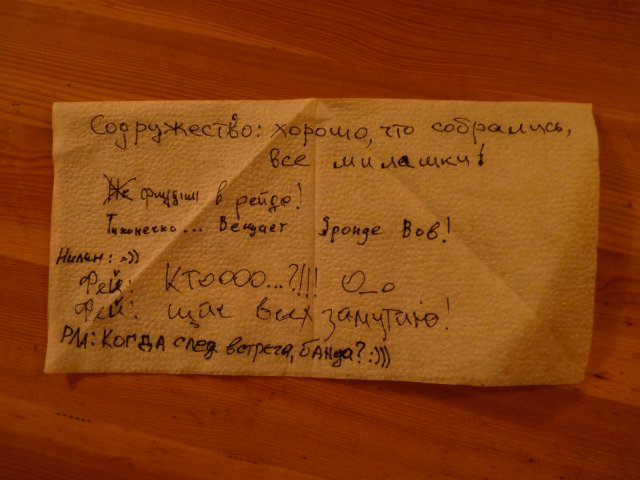 Содружество: хорошо, что собрались,
все милашки!
Не флудим в рейде!
Тихонечко... Вещает Эронде Вов!
Нилин: =))
Фей: Ктоооо...?!!! О_о
Фей: щас всех замутию!
РЛ: Когда след. встреча, банда? :)))